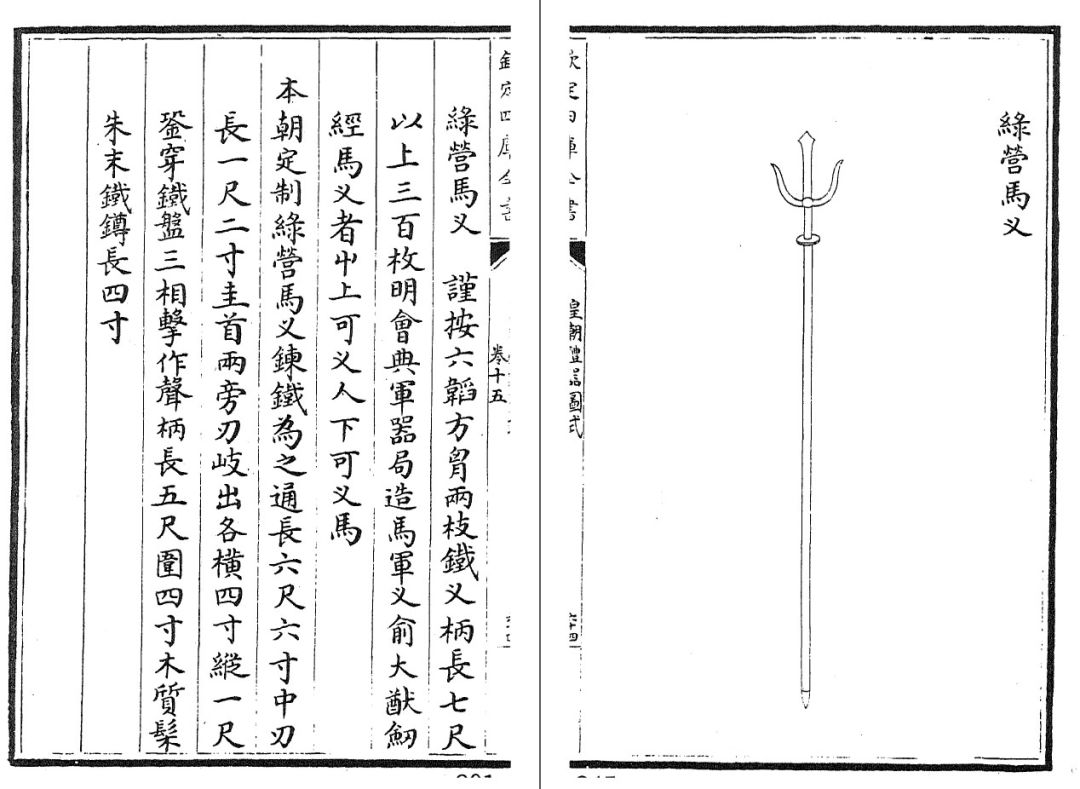 綠營馬义
欽定四庫全書
皇朝禮器圖式
卷十五
綠營馬义　謹按六韜方胷兩枝鐵义柄長七尺
以上三百枚明會典軍器局造馬軍义俞大猷劒
經馬义者屮上可义人下可义馬
本朝定制綠營馬义鍊鐵為之通長六尺六寸中刃
長一尺二寸圭首兩旁刃岐出各橫四寸縱一尺
銎穿鐵盤三相擊作聲柄長五尺圍四寸木質髹
朱末鐵鐏長四寸